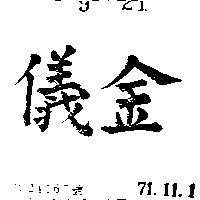 9 21
儀金
71.11.1